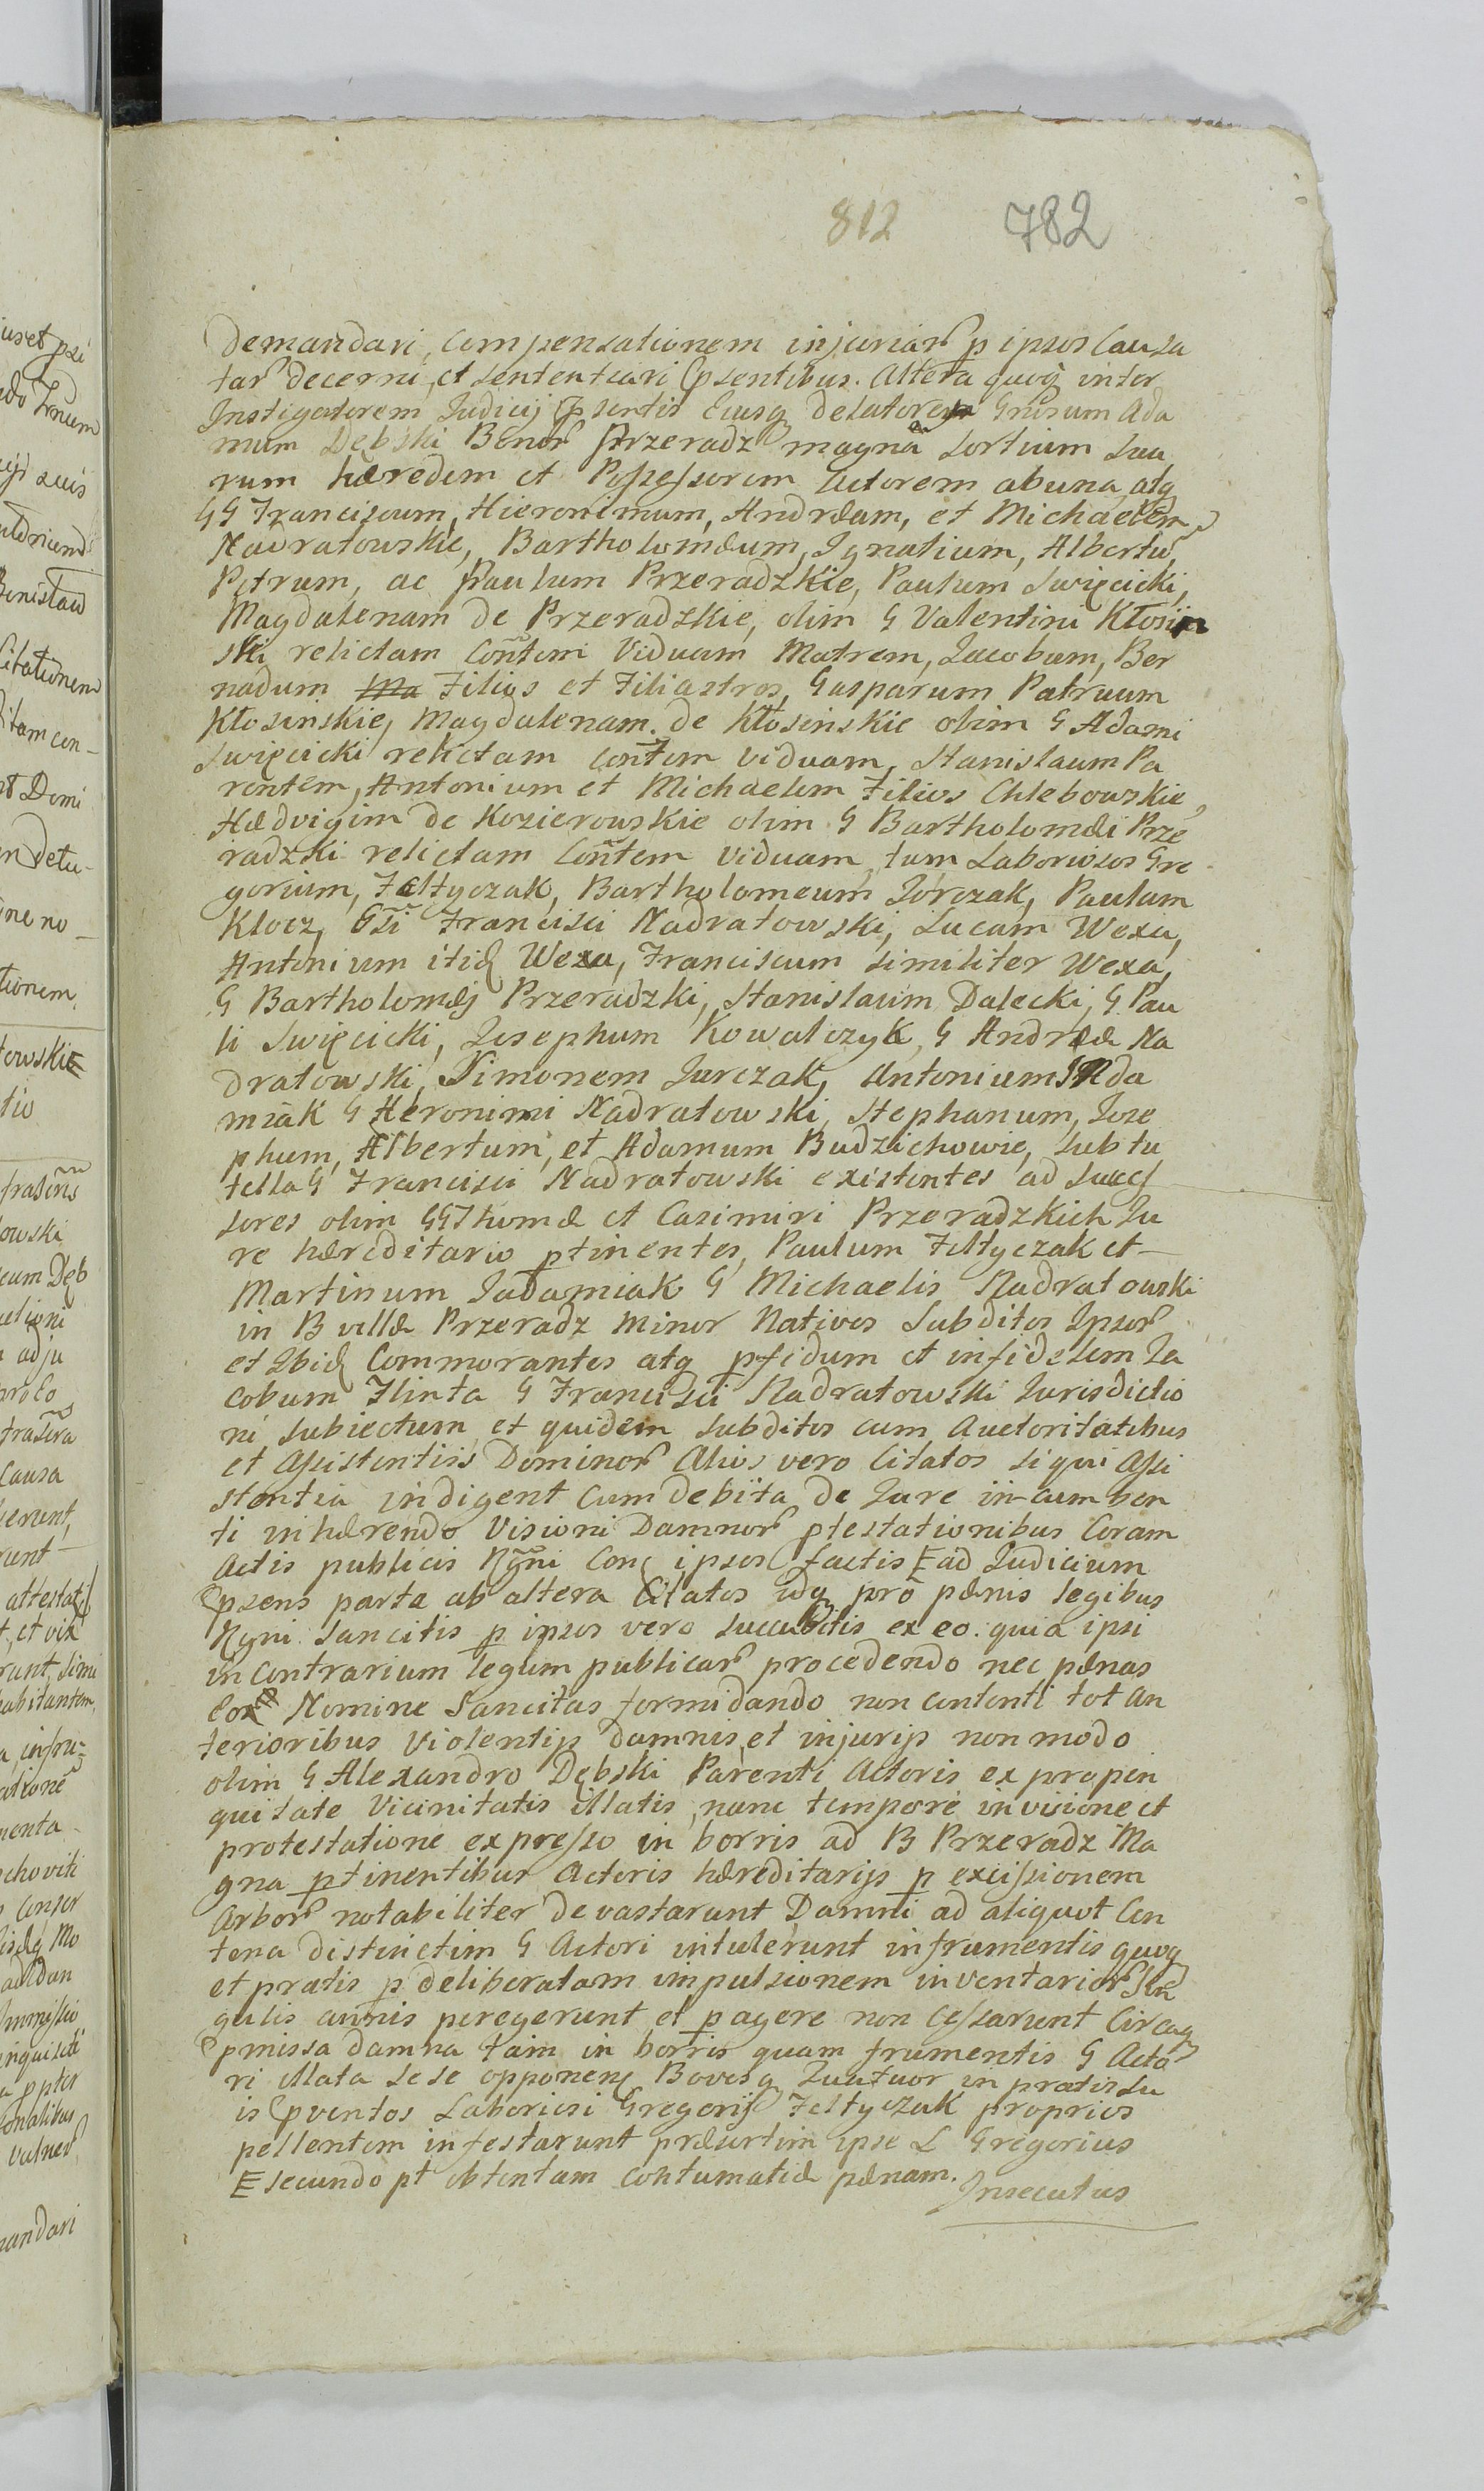 812 782
demandari, compensationem injuriar p ipsos causa
tar decerni, et sententiari psentibus. Altera quoq inter
Instigatorem Judicij psentis Eiusq delatorem Gnosum Ada
mum Dębski Bonor Przeradz magna sortium sua
rum hæredem et Possessorem Actorem abuna atq
GG Franciscum, Hieronimum, Andræam, et Michaelem
Nadratowskie, Bartholomæum, Ignatium, Albertu
Petrum, ac Paulum Przeradzkie, Paulum Swięcicki,
Magdalenam de Przeradzkie, olim G Valentini Kłosiń
ski relictam Contem Viduam Matrem, Jacobum, Ber
nadum Ma Filios et Filiastros, Gasparum Patruum
Kłosińskie, Magdalenam de Kłosinskie olim G Adami
Swięcicki relictam contem viduam, Stanislaum Pa
rentem, Antonium et Michaelem Filios Chlebowskie,
Hædvigim de Kozierowskie olim G Bartholomæi Prze
radzki relictam Contem Viduam, tum Laboriosos Gre
gorium, Fełtyczak, Bartholomeum Jórczak, Paulum
Klocz, Gsi Francisci Nadratowski, Lucam Wexa,
Antonium itid Wexa, Franciscum similiter Wexa,
G Bartholomæj Przeradzki, Stanislaum Dalecki, G Pau
li Swięcicki, Josephum Kowalczyk, G Andrææ Na
dratowski, Simonem Jurczak, Antonium Jada
miak G Heronimi Nadratowski, Stephanum, Jose
phum, Albertum, et Adamum Budzichowie, sub tu
tella G Francisci Nadratowski existentes ad succes
sores olim GG Thomæ et Casimiri Przeradzkich Ju
re hæreditario ptinentes, Paulum Fełtyczak et
Martinum Jadamiak G Michaelis Nadratowski
in B villæ Przeradz minor Nativos Subditos Ipsor
et Ibid Commorantes atq pfidum et infidelem Ja
cobum Flinta G Francisci Nadratowski Jurisdictio
ni subiectum et quidem subditos cum Auctoritatibus
et Assistentiis Dominor Alios vero Citatos si qui Assi
stentia indigent cum debita de Jure incumben
ti inhærendo Visioni Damnor ptestationibus Coram
Actis publicis Rgni Con ipsos factis E ad Judicium
psens parte ab altera Citatos idq pro pænis legibus
Rgni sancitis p ipsos vero succubitis ex eo. quia ipsi
in contrarium legum publicar procedendo nec pænas
Eor Nomine Sancitas formidando non contenti tot an
terioribus Violentijs damnis et injurijs non modo
olim G Alexandro Dębski Parenti Actoris ex propin
quitate Vicinitatis illatis, nunc tempore in visione et
protestatione expresso in borris ad B Przeradz Ma
gna ptinentibus Actoris hæreditarijs p excissionem
Arbor notabiliter devastarunt Damni ad aliquot Cen
tena distinctim G Actori intulerunt in frumentis quoq
et pratis p deliberatam impulsionem inventarior Sin
gulis annis peregerunt et pagere non cessarunt Circaq
pmissa damna tam in borris quam frumentis G Acto
ri illata sese opponen Bovesq Quatuor in pratis su
is pventos Laboriosi Gregorij Fełtyczak proprios
pellentem infestarunt præsertim ipse L Gregorius
E secundo pt obtentam contumatiæ pænam.
Insecutus